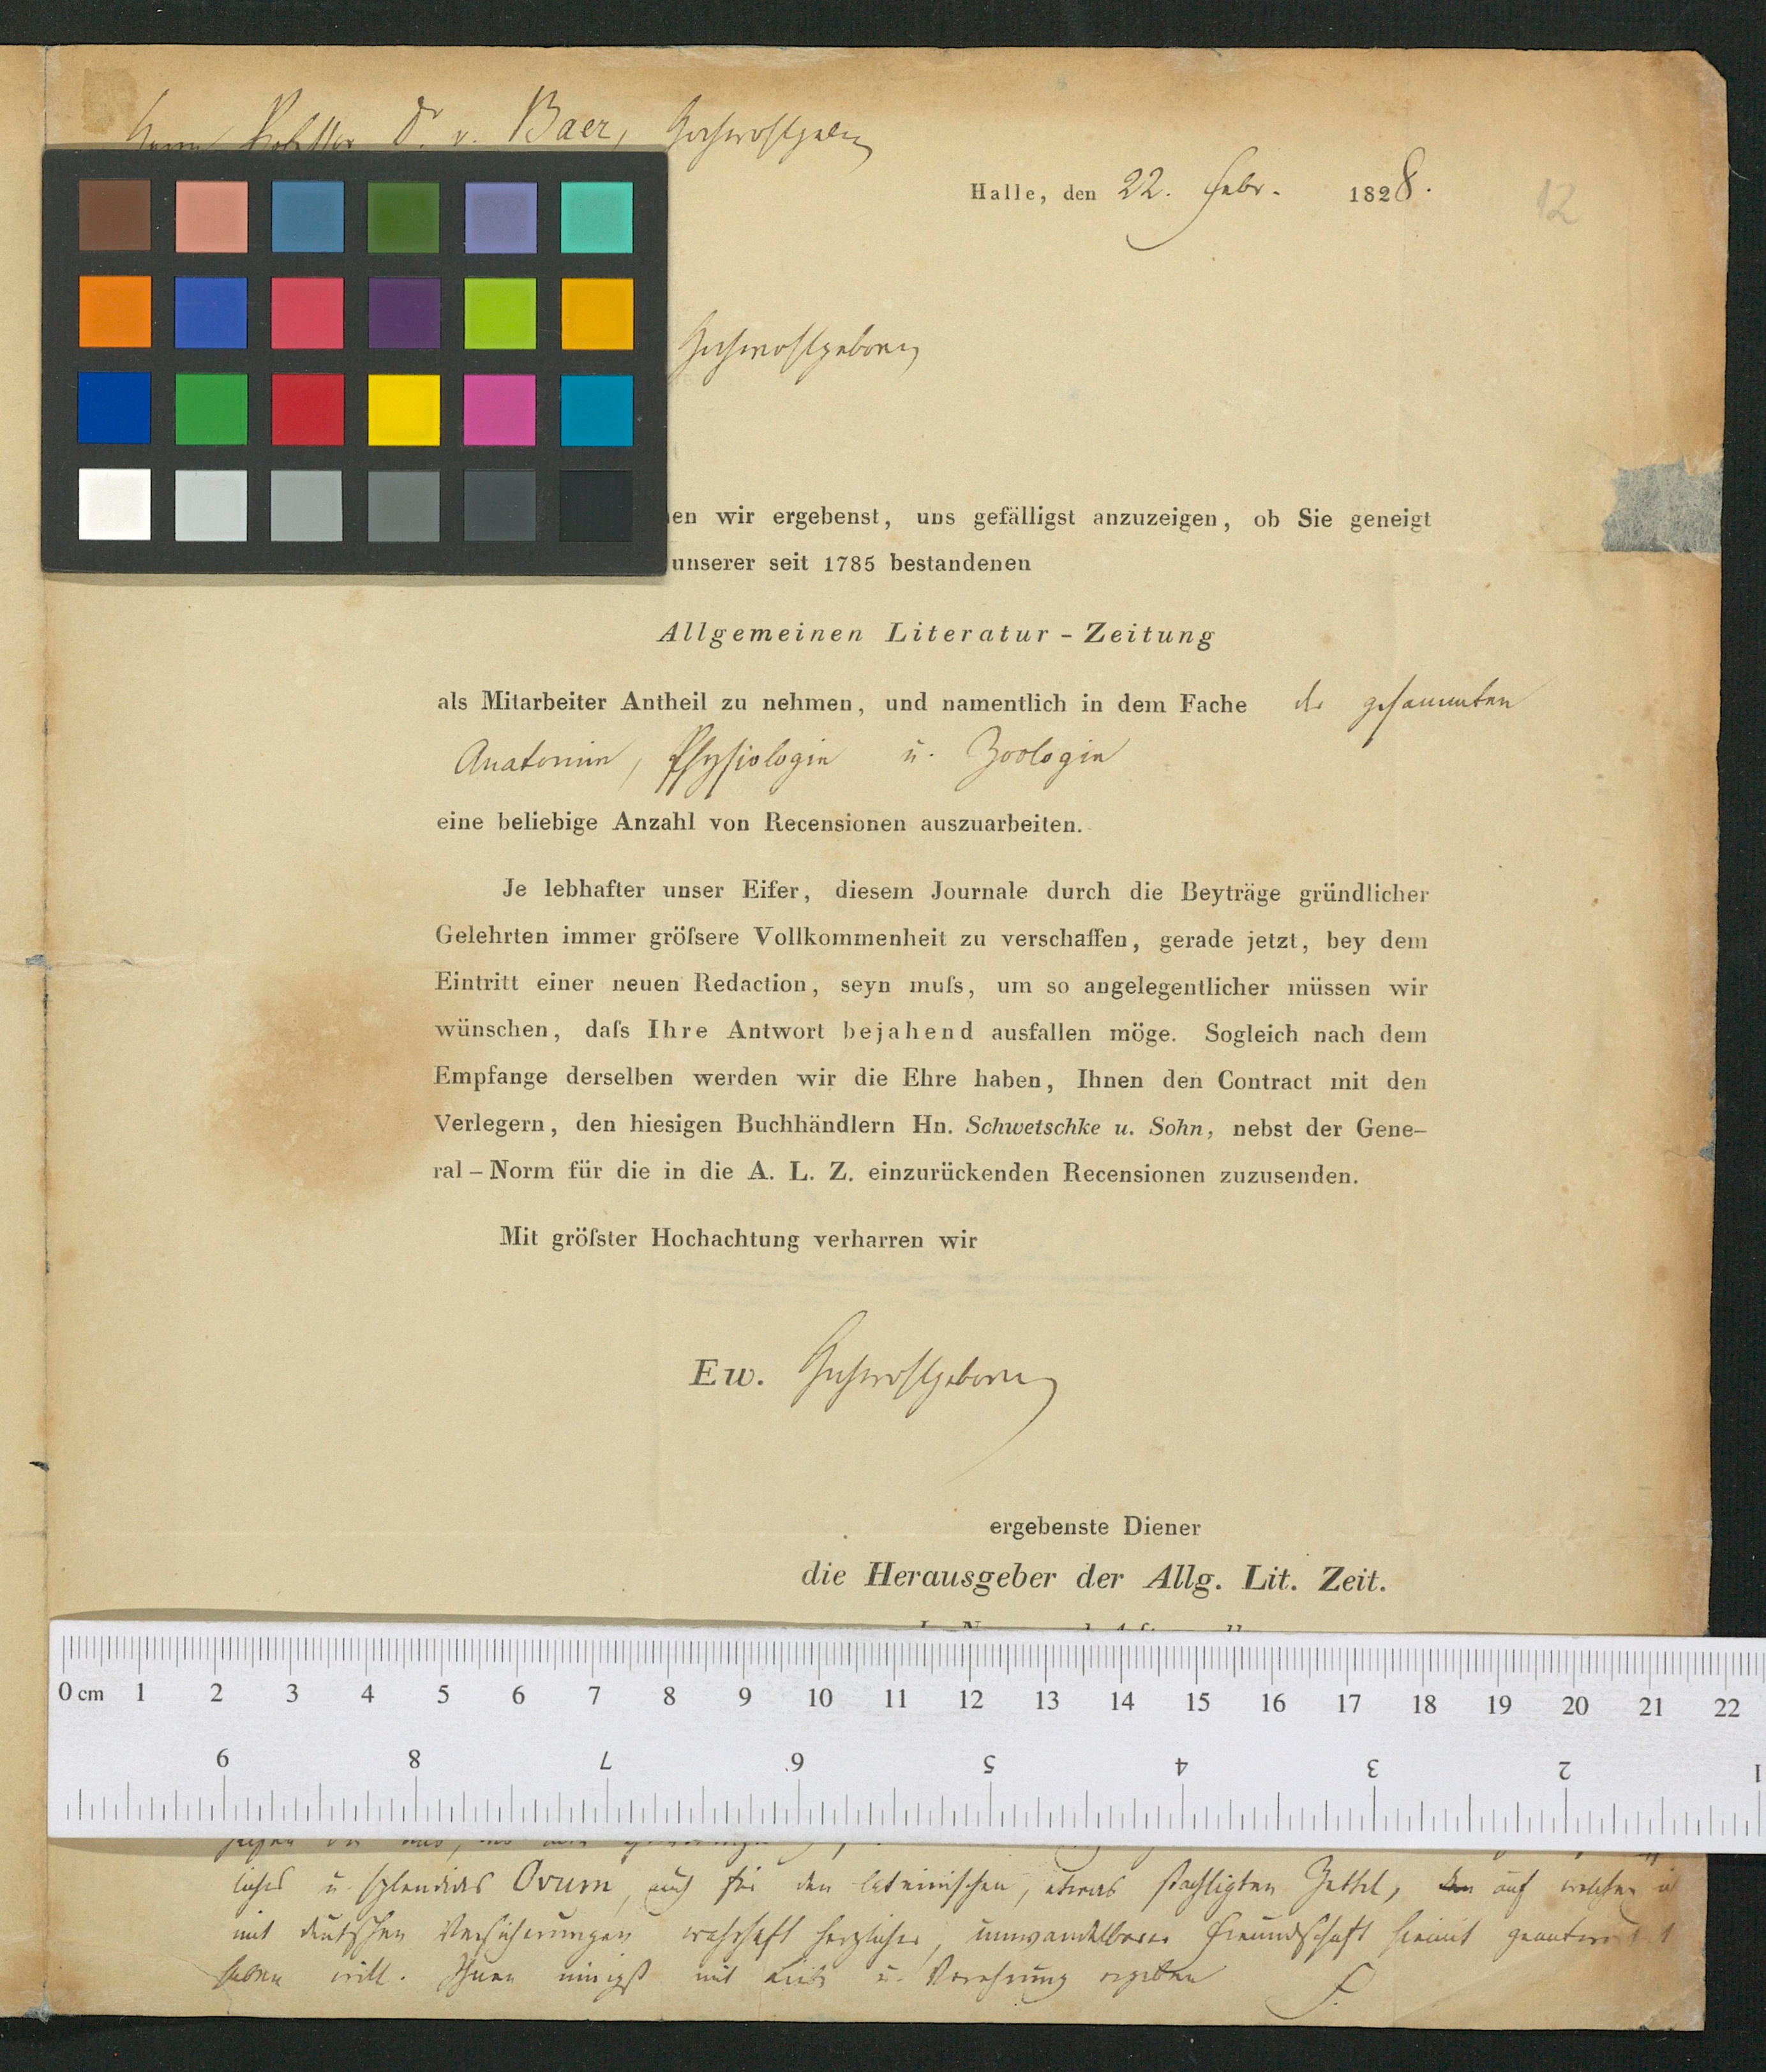 Herrn Professor Dr. v. Baer, Hochwohlgeb.
Halle, den 22. Febr. 1828.
12
Hochwohlgeboren
en wir ergebenst, uns gefälligst anzuzeigen, ob Sie geneigt
unserer seit 1785 bestandenen
Allgemeinen Literatur-Zeitung
als Mitarbeiter Antheil zu nehmen, und namentlich in dem Fache der gesammten
Anatomie, Physiologie u. Zoologie
eine beliebige Anzahl von Recensionen auszuarbeiten.
Je lebhafter unser Eifer, diesem Journale durch die Beyträge gründlicher
Gelehrten immer gröſsere Vollkommenheit zu verschaffen, gerade jetzt, bey dem
Eintritt einer neuen Redaction, seyn muſs, um so angelegentlicher müssen wir
wünschen, daſs Ihre Antwort bejahend ausfallen möge. Sogleich nach dem
Empfange derselben werden wir die Ehre haben, Ihnen den Contract mit den
Verlegern, den hiesigen Buchhändlern Hn. Schwetschke u. Sohn, nebst der Gene-
ral-Norm für die in die A. L. Z. einzurückenden Recensionen zuzusenden.
Mit gröſster Hochachtung verharren wir
Ew. Hochwohlgeboren
ergebenste Diener
die Herausgeber der Allg. Lit. Zeit.
0 cm 1 2 3 4 5 6 7 8 9 10 11 12 13 14 15 16 17 18 19 20 21 22
9 8 7 6 5 4 3 2 1
liches u. splendides Ovum, auch für den lateinischen, etwas stachligten Zettel, auf welchen ich
mit deutschen Versicherungen wahrhaft herzlicher, unwandelbarer Freundschaft hiemit geantwortet
haben will. Ihnen innigst mit Liebe u. Verehrung ergeben